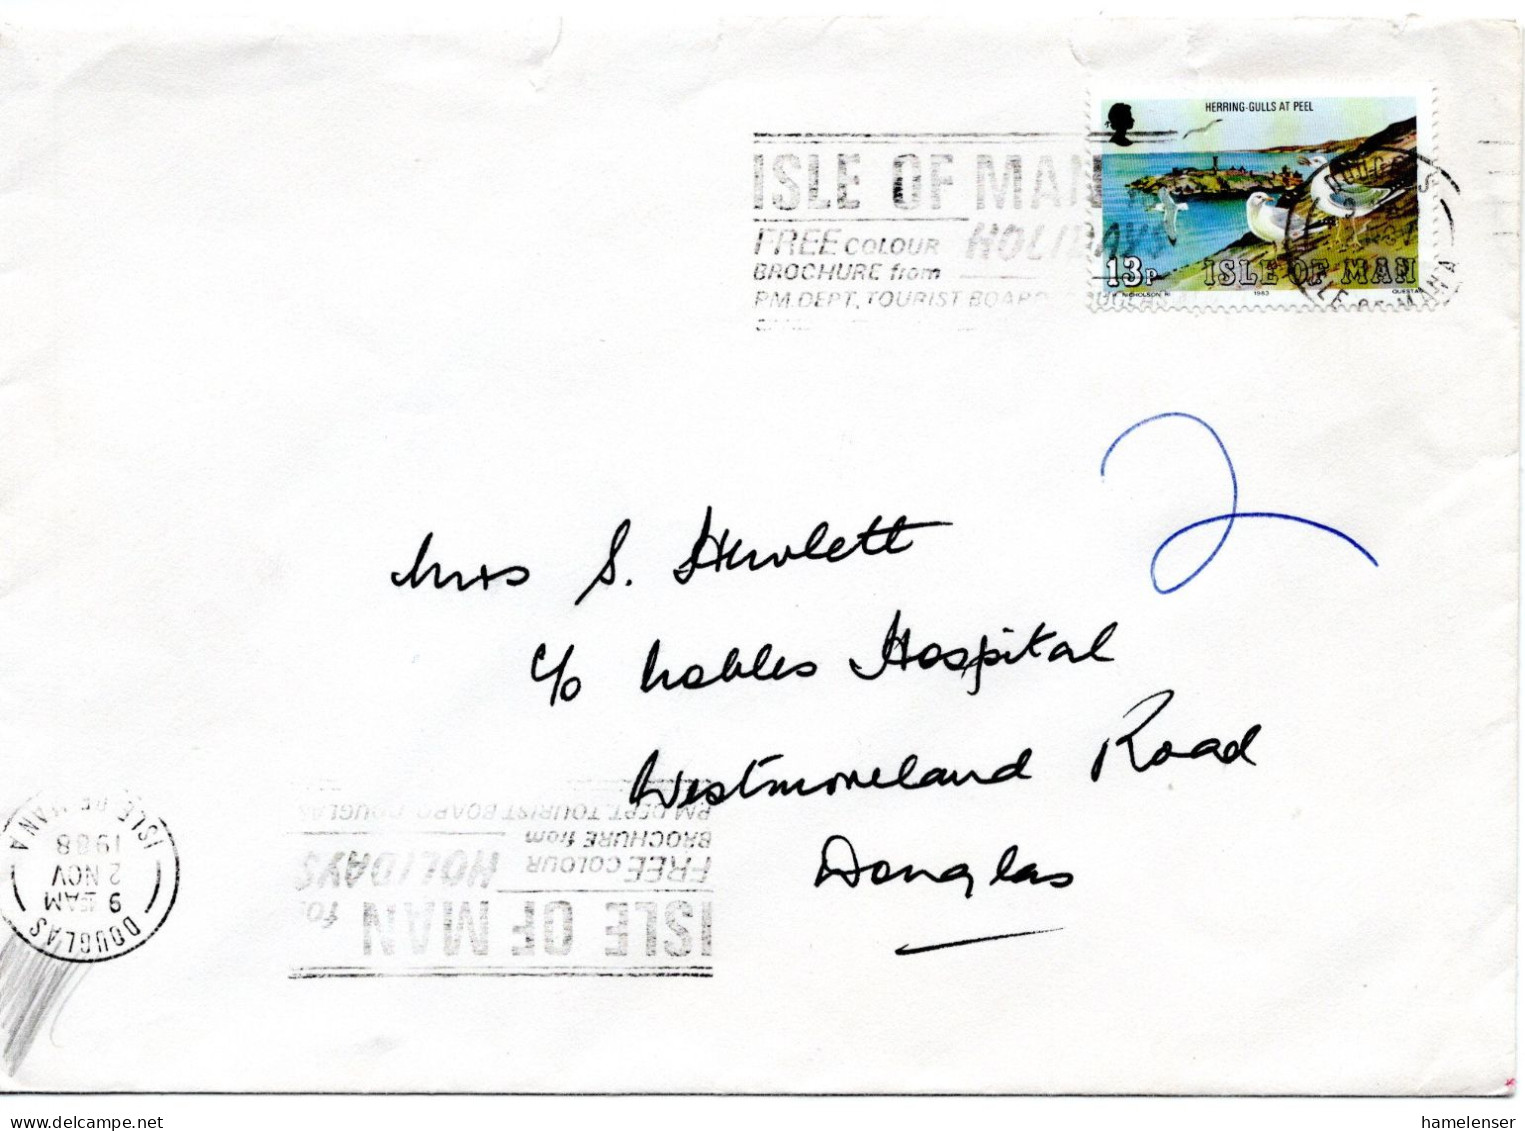 HERRING-GULLS AT PEEL
13P ISLE OF MAN
NICHOLSON 1983 QUESTA
ISLE OF MAN
FREE COLOUR HOLIDAYS
BROCHURE from
P.M. DEPT, TOURIST BOARD, DOUGLAS
DOUGLAS
NOV
ISLE OF MAN A
Mrs S. Hewlett
c/o Nobles Hospital
Westmoreland Road
Douglas
DOUGLAS
9 15AM
2 NOV
1988
ISLE OF MAN A
ISLE OF MAN for
FREE COLOUR HOLIDAYS
BROCHURE from
P.M. DEPT, TOURIST BOARD, DOUGLAS
hamelenser
delcampe.net